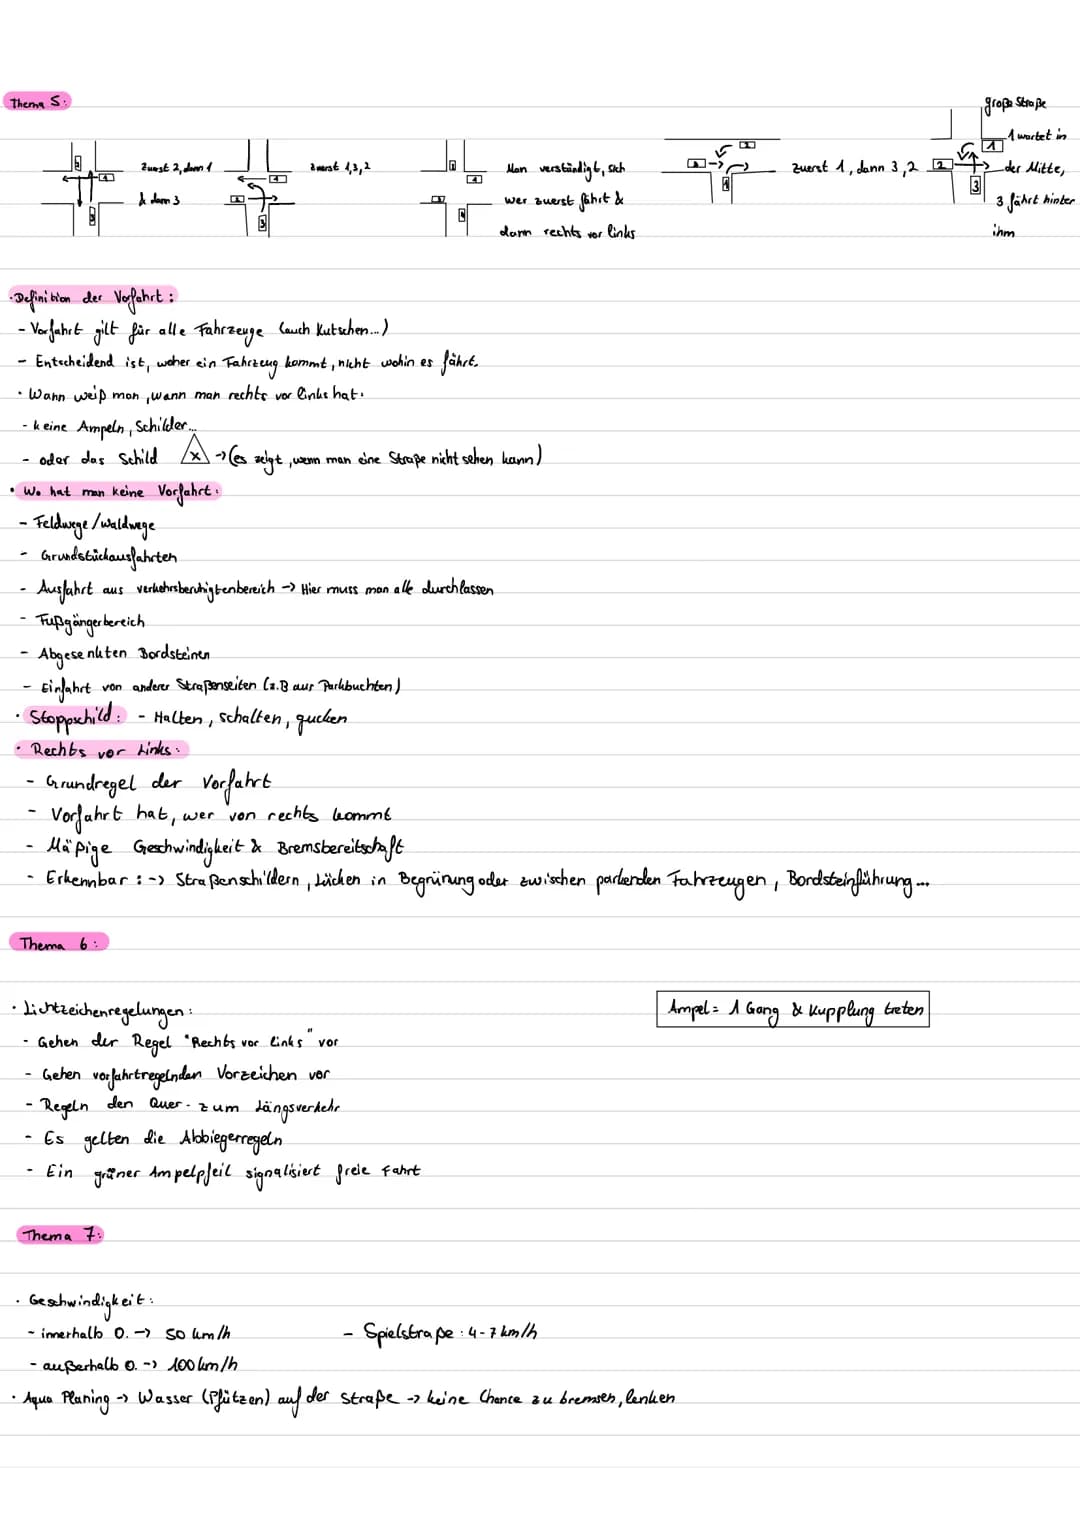 Thema 5:
zuerst 2, dann 1
& dann 3
zuerst 1,3,2
Man verständigt, sich
wer zuerst fährt &
dann rechts vor links
zuerst 1, dann 3,2
große Straße
1 wartet in
der Mitte,
3 fährt hinter
ihm
· Definition der Vorfahrt:
- Vorfahrt gilt für alle Fahrzeuge (auch Kutschen...)
- Entscheidend ist, woher ein Fahrzeug kommt, nicht wohin es fährt.
· Wann weiß man, wann man rechts vor links hat:
- keine Ampeln, Schilder...
- oder das Schild X -> (es zeigt, wenn man eine Straße nicht sehen kann)
· Wo hat man keine Vorfahrt:
- Feldwege / Waldwege
- Grundstückausfahrten
- Ausfahrt aus verkehrsberuhigtenbereich -> Hier muss man alle durchlassen
- Fußgängerbereich
- Abgesenkten Bordsteinen
- Einfahrt von anderer Straßenseiten (z.B aus Parkbuchten)
· Stoppschild: - Halten, schalten, gucken
· Rechts vor Links:
- Grundregel der Vorfahrt
- Vorfahrt hat, wer von rechts kommt
- Mäßige Geschwindigkeit & Bremsbereitschaft
- Erkennbar: -> Straßenschildern, Lücken in Begrünung oder zwischen parkenden Fahrzeugen, Bordsteinführung...
Thema 6:
· Lichtzeichenregelungen:
Ampel = 1 Gang & Kupplung treten
- Gehen der Regel "Rechts vor links" vor
- Gehen vorfahrtregelnden Vorzeichen vor
- Regeln den Quer- zum Längsverkehr
- Es gelten die Abbiegerregeln
- Ein grüner Ampelpfeil signalisiert freie Fahrt
Thema 7:
· Geschwindigkeit:
- innerhalb O. -> 50 km/h
- Spielstraße: 4-7 km/h
- außerhalb O. -> 100 km/h
· Aqua Planing -> Wasser (Pfützen) auf der Straße -> keine Chance zu bremsen, lenken